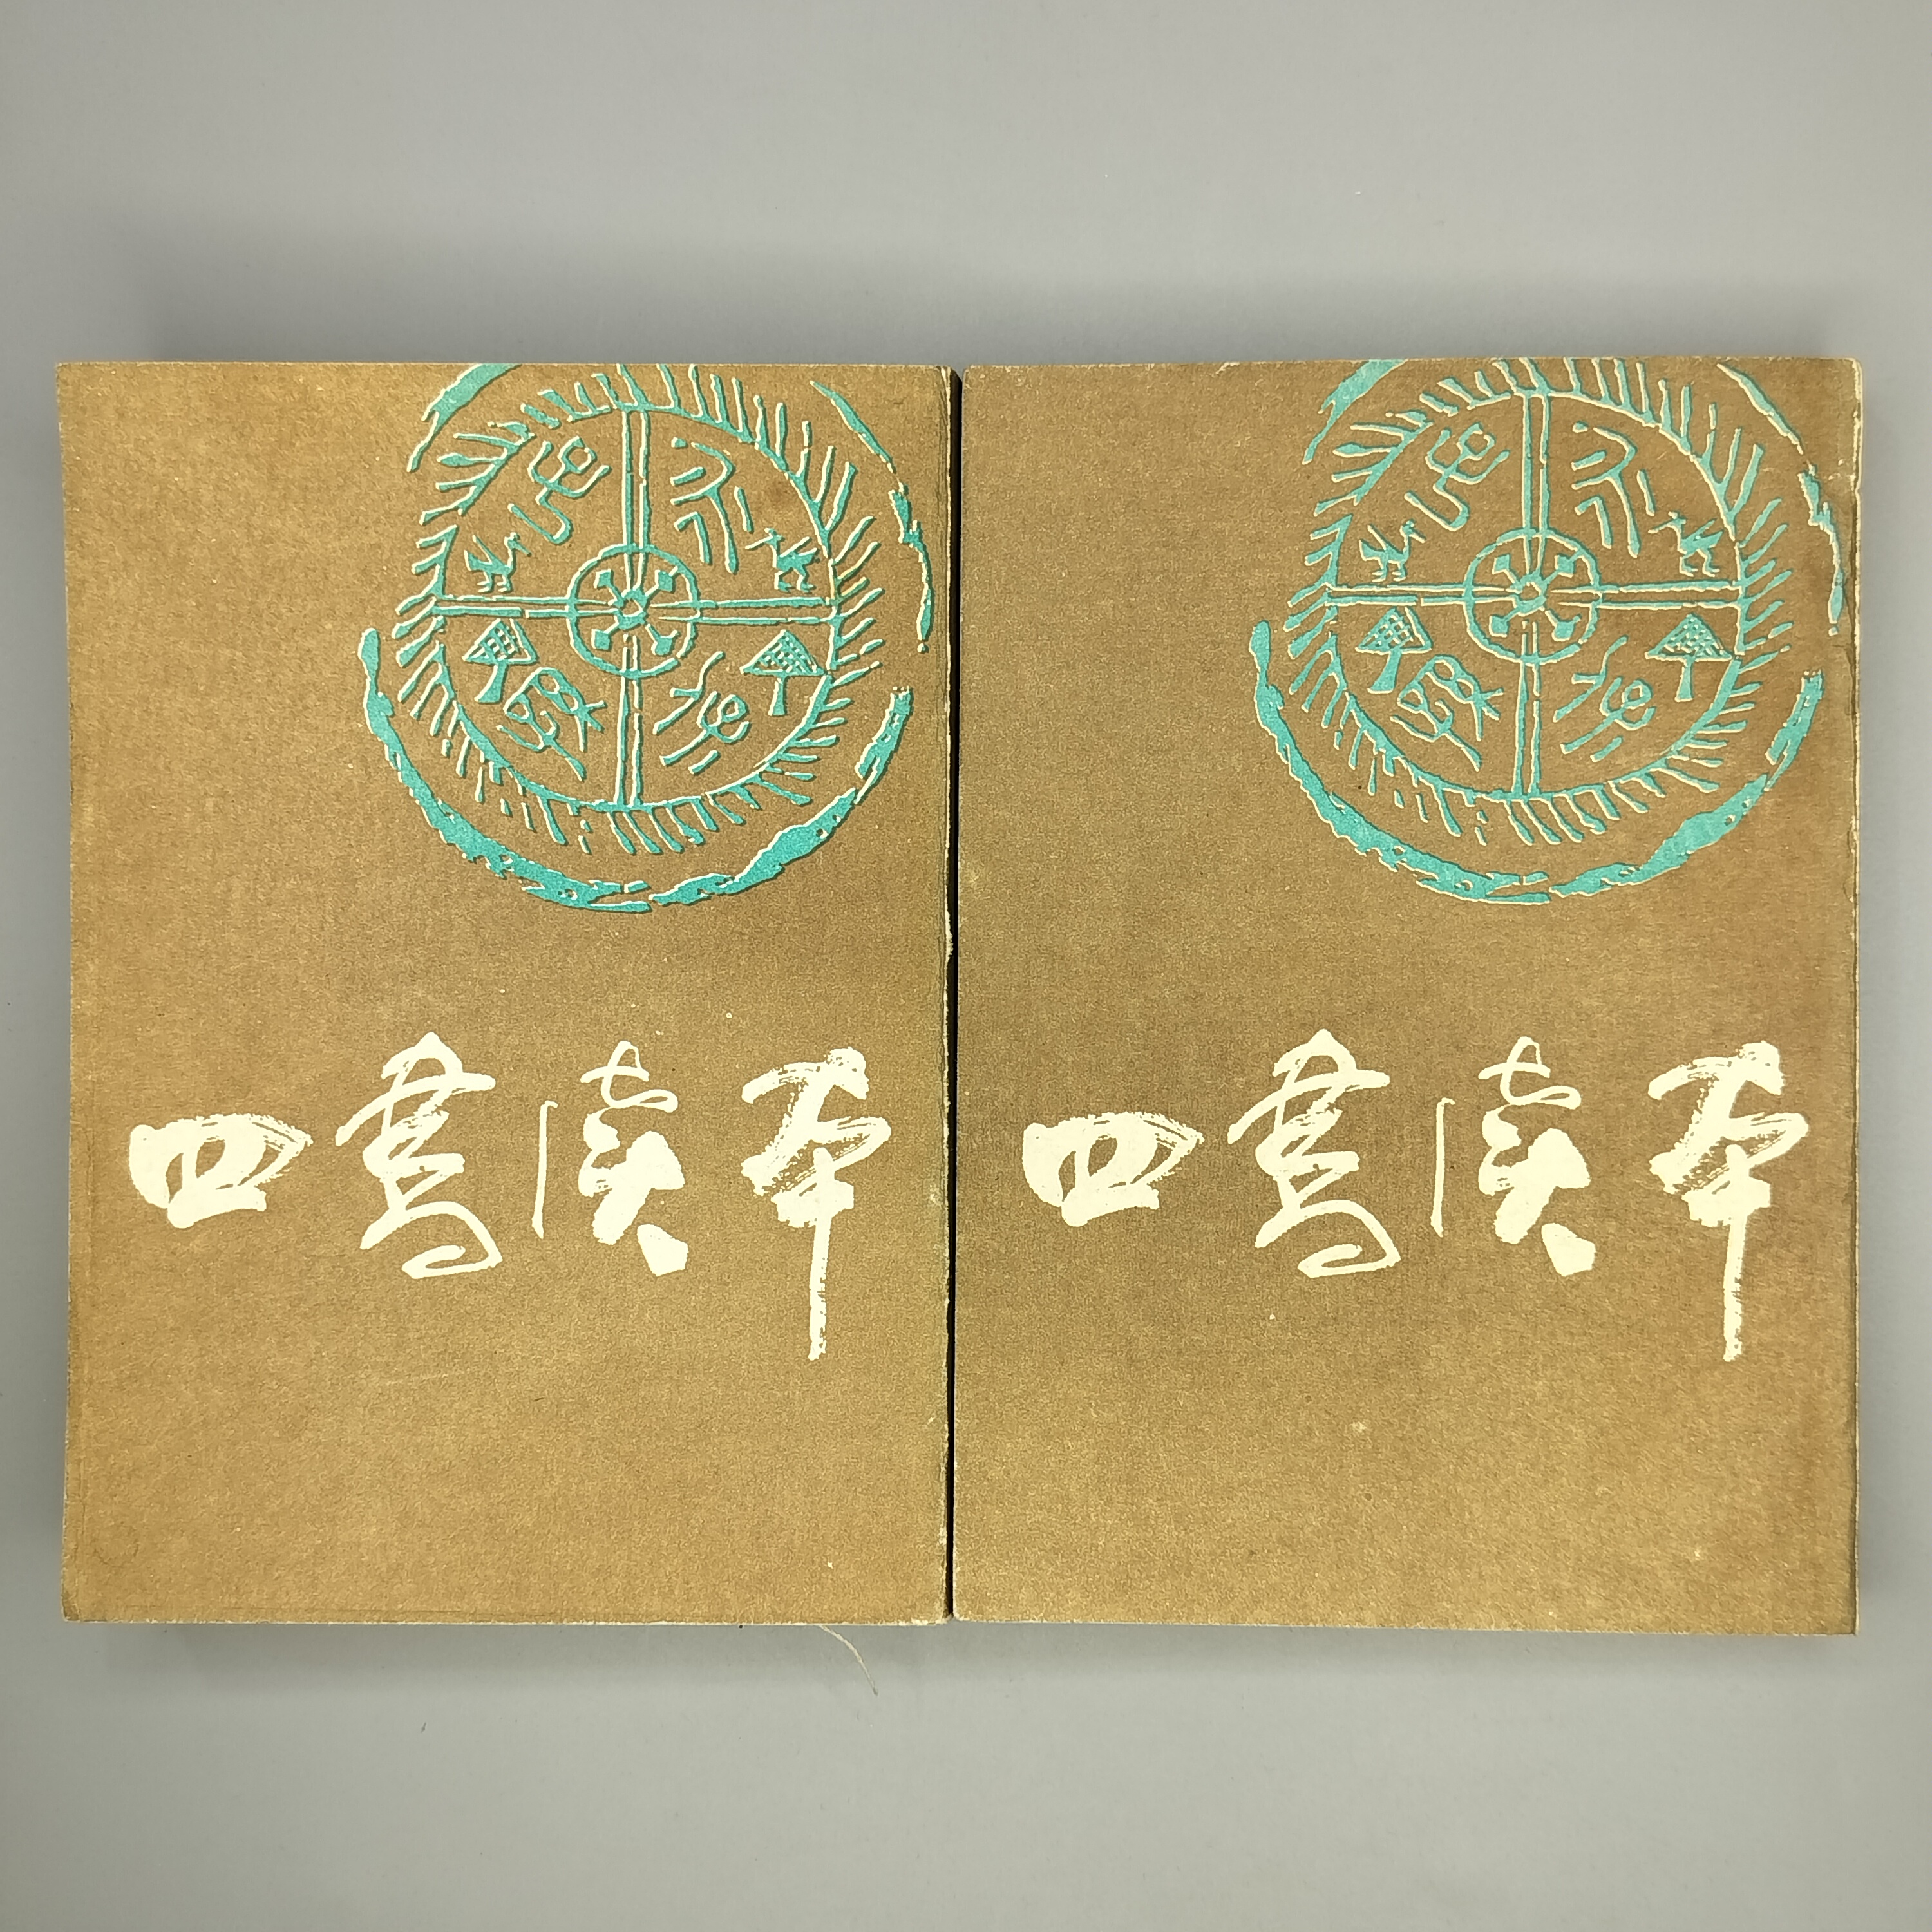 四書讀本
四書讀本